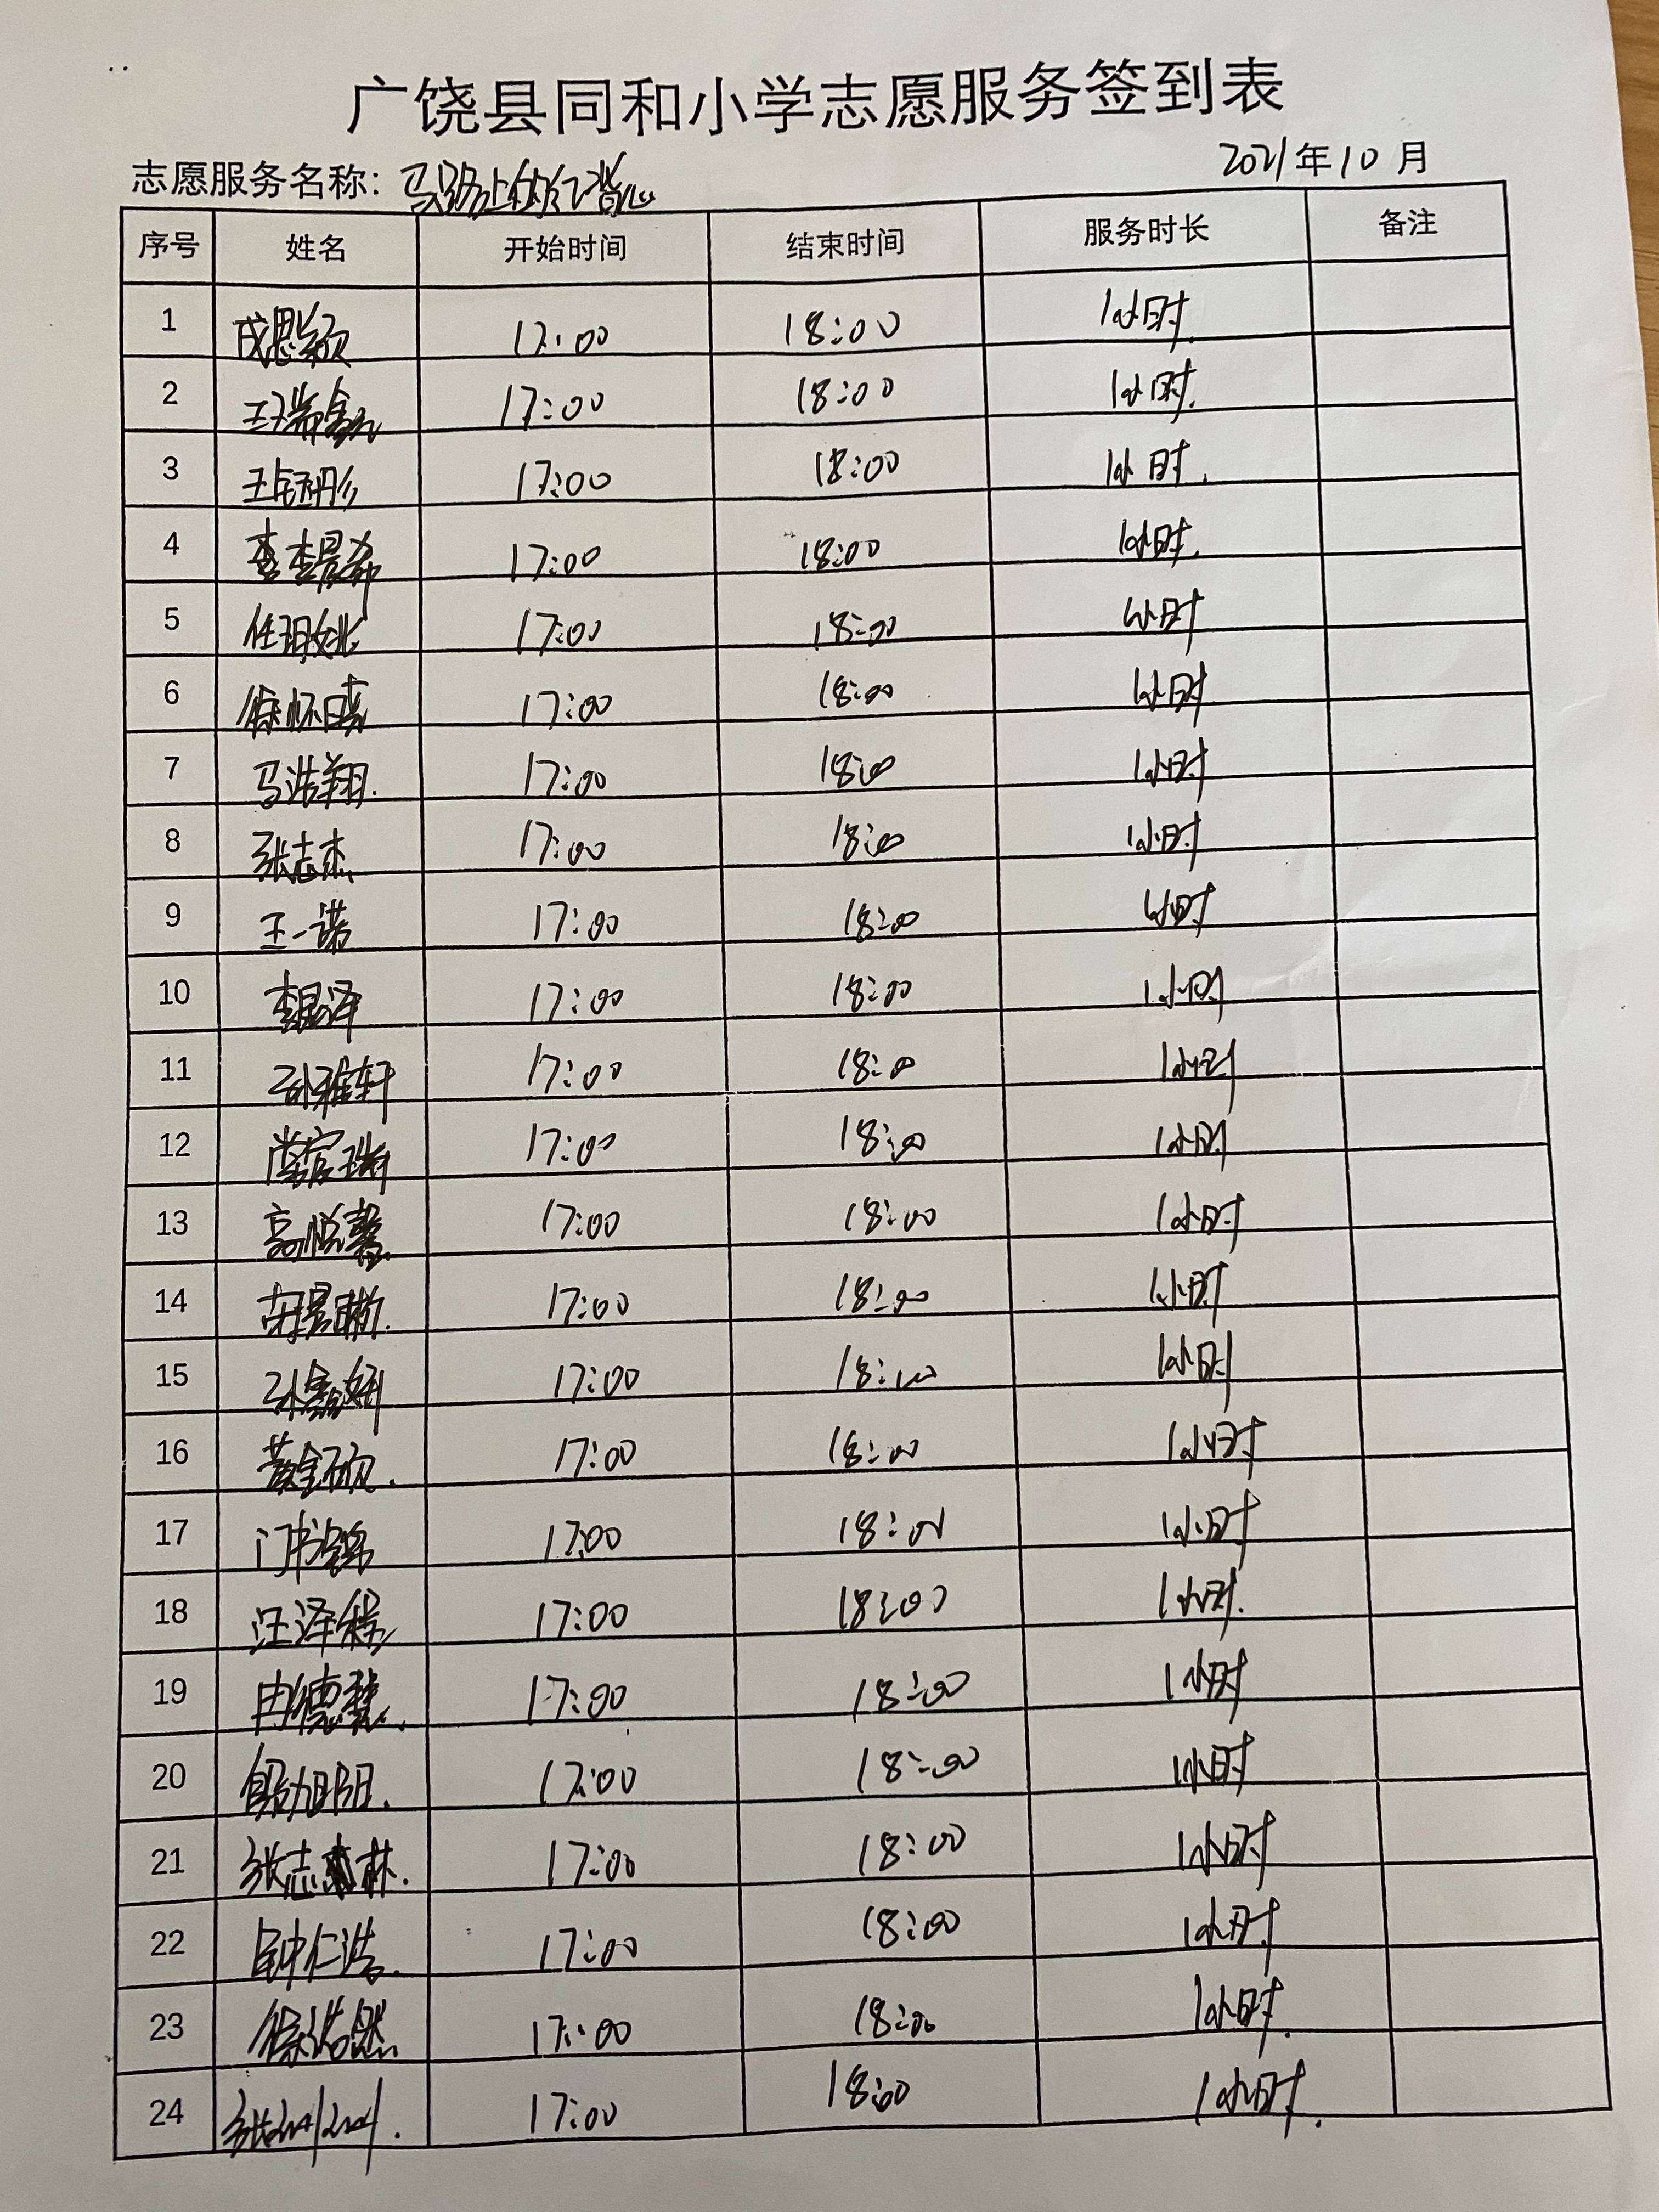 广饶县同和小学志愿服务签到表
志愿服务名称：马路上的红背心 2021年10月
序号 姓名 开始时间 结束时间 服务时长 备注
1 成思颖 17:00 18:00 1小时
2 王瑞鑫 17:00 18:00 1小时
3 王钰彤 17:00 18:00 1小时
4 李晨希 17:00 18:00 1小时
5 任玥姚 17:00 18:00 1小时
6 徐怀 17:00 18:00 1小时
7 马浩翔 17:00 18:00 1小时
8 张志杰 17:00 18:00 1小时
9 王一诺 17:00 18:00 1小时
10 李昺泽 17:00 18:00 1小时
11 孙雅轩 17:00 18:00 1小时
12 尚宸瑞 17:00 18:00 1小时
13 高悦馨 17:00 18:00 1小时
14 17:00 18:00 1小时
15 孙鑫妍 17:00 18:00 1小时
16 黄金砚 17:00 18:00 1小时
17 门书锦 17:00 18:00 1小时
18 汪泽程 17:00 18:00 1小时
19 冉德慧 17:00 18:00 1小时
20 殷旭阳 17:00 18:00 1小时
21 张志林 17:00 18:00 1小时
22 钟仁浩 17:00 18:00 1小时
23 徐浩然 17:00 18:00 1小时
24 张 17:00 18:00 1小时